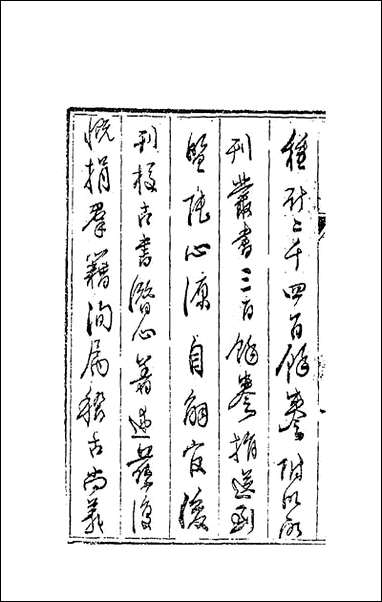 種計二千四百餘卷附以所
刊叢書三百餘卷捐送到
監陸心源自解官後
刊校古書潛心著述茲復
慨捐羣籍洵屬稽古尚義